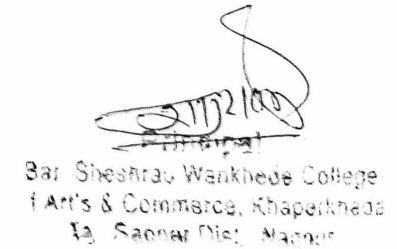 Principal
Bar Sheshrav Wankhede College
f Art's & Commerce, Khaperkheda
Ta Saoner Dist. Nagpur